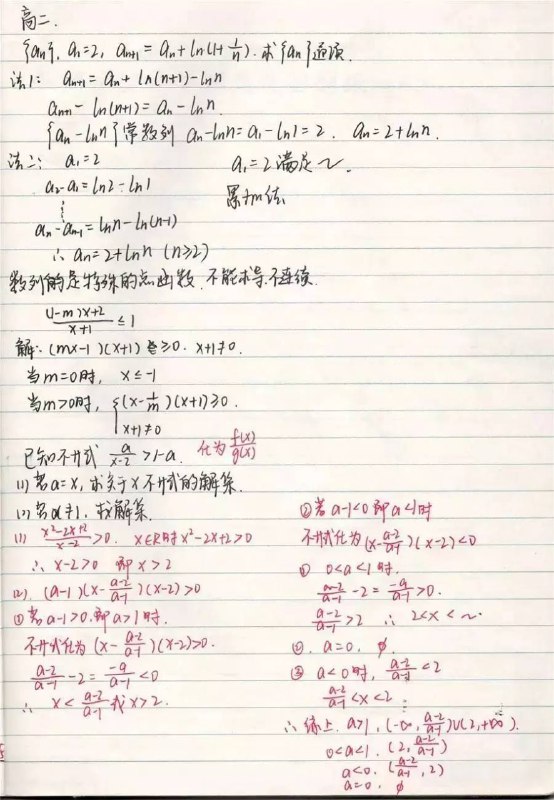 高二.
{an}, a₁=2, an+1 = an + ln(1+1/n). 求{an}通项.
法1: an+1 = an + ln(n+1) - ln n
an+1 - ln(n+1) = an - ln n.
{an - ln n}常数列 an - ln n = a₁ - ln1 = 2. an = 2 + ln n.
法二: a₁ = 2 a₁ = 2 满足~.
a₂ - a₁ = ln2 - ln1 累加法
⋮
an - an-1 = ln n - ln(n-1)
∴ an = 2 + ln n (n≥2)
数列的是特殊的点函数. 不能求导. 不连续.
(1-m)x+2/x+1 ≤ 1
解: (mx-1)(x+1) ≥0. x+1≠0.
当m=0时, x ≤ -1
当m>0时, { (x - 1/m)(x+1) ≥0.
x+1≠0
已知不等式 a/x-2 > 1-a. 化为 f(x)/g(x)
(1) 若a=x, 求关于x不等式的解集.
(2) 若a≠1, 求解集.
(1) x²-2x+2/x-2 >0. x∈R时 x²-2x+2>0
∴ x-2>0 即 x>2
(2). (a-1)(x - a-2/a-1)(x-2)>0
① 若a-1>0. 即a>1时.
不等式化为 (x - a-2/a-1)(x-2)>0.
a-2/a-1 - 2 = -a/a-1 <0
∴ x < a-2/a-1 或 x>2.
② 若a-1<0 即a<1时
不等式化为(x - a-2/a-1)(x-2)<0
① 0<a<1时.
a-2/a-1 - 2 = -a/a-1 >0.
a-2/a-1 >2 ∴ 2<x<~
②. a=0, ∅.
③ a<0时, a-2/a-1 <2
a-2/a-1 <x<2
∴ 综上. a>1, (-∞, a-2/a-1)∪(2,+∞).
0<a<1. (2, a-2/a-1)
a<0. (a-2/a-1, 2)
a=0, ∅